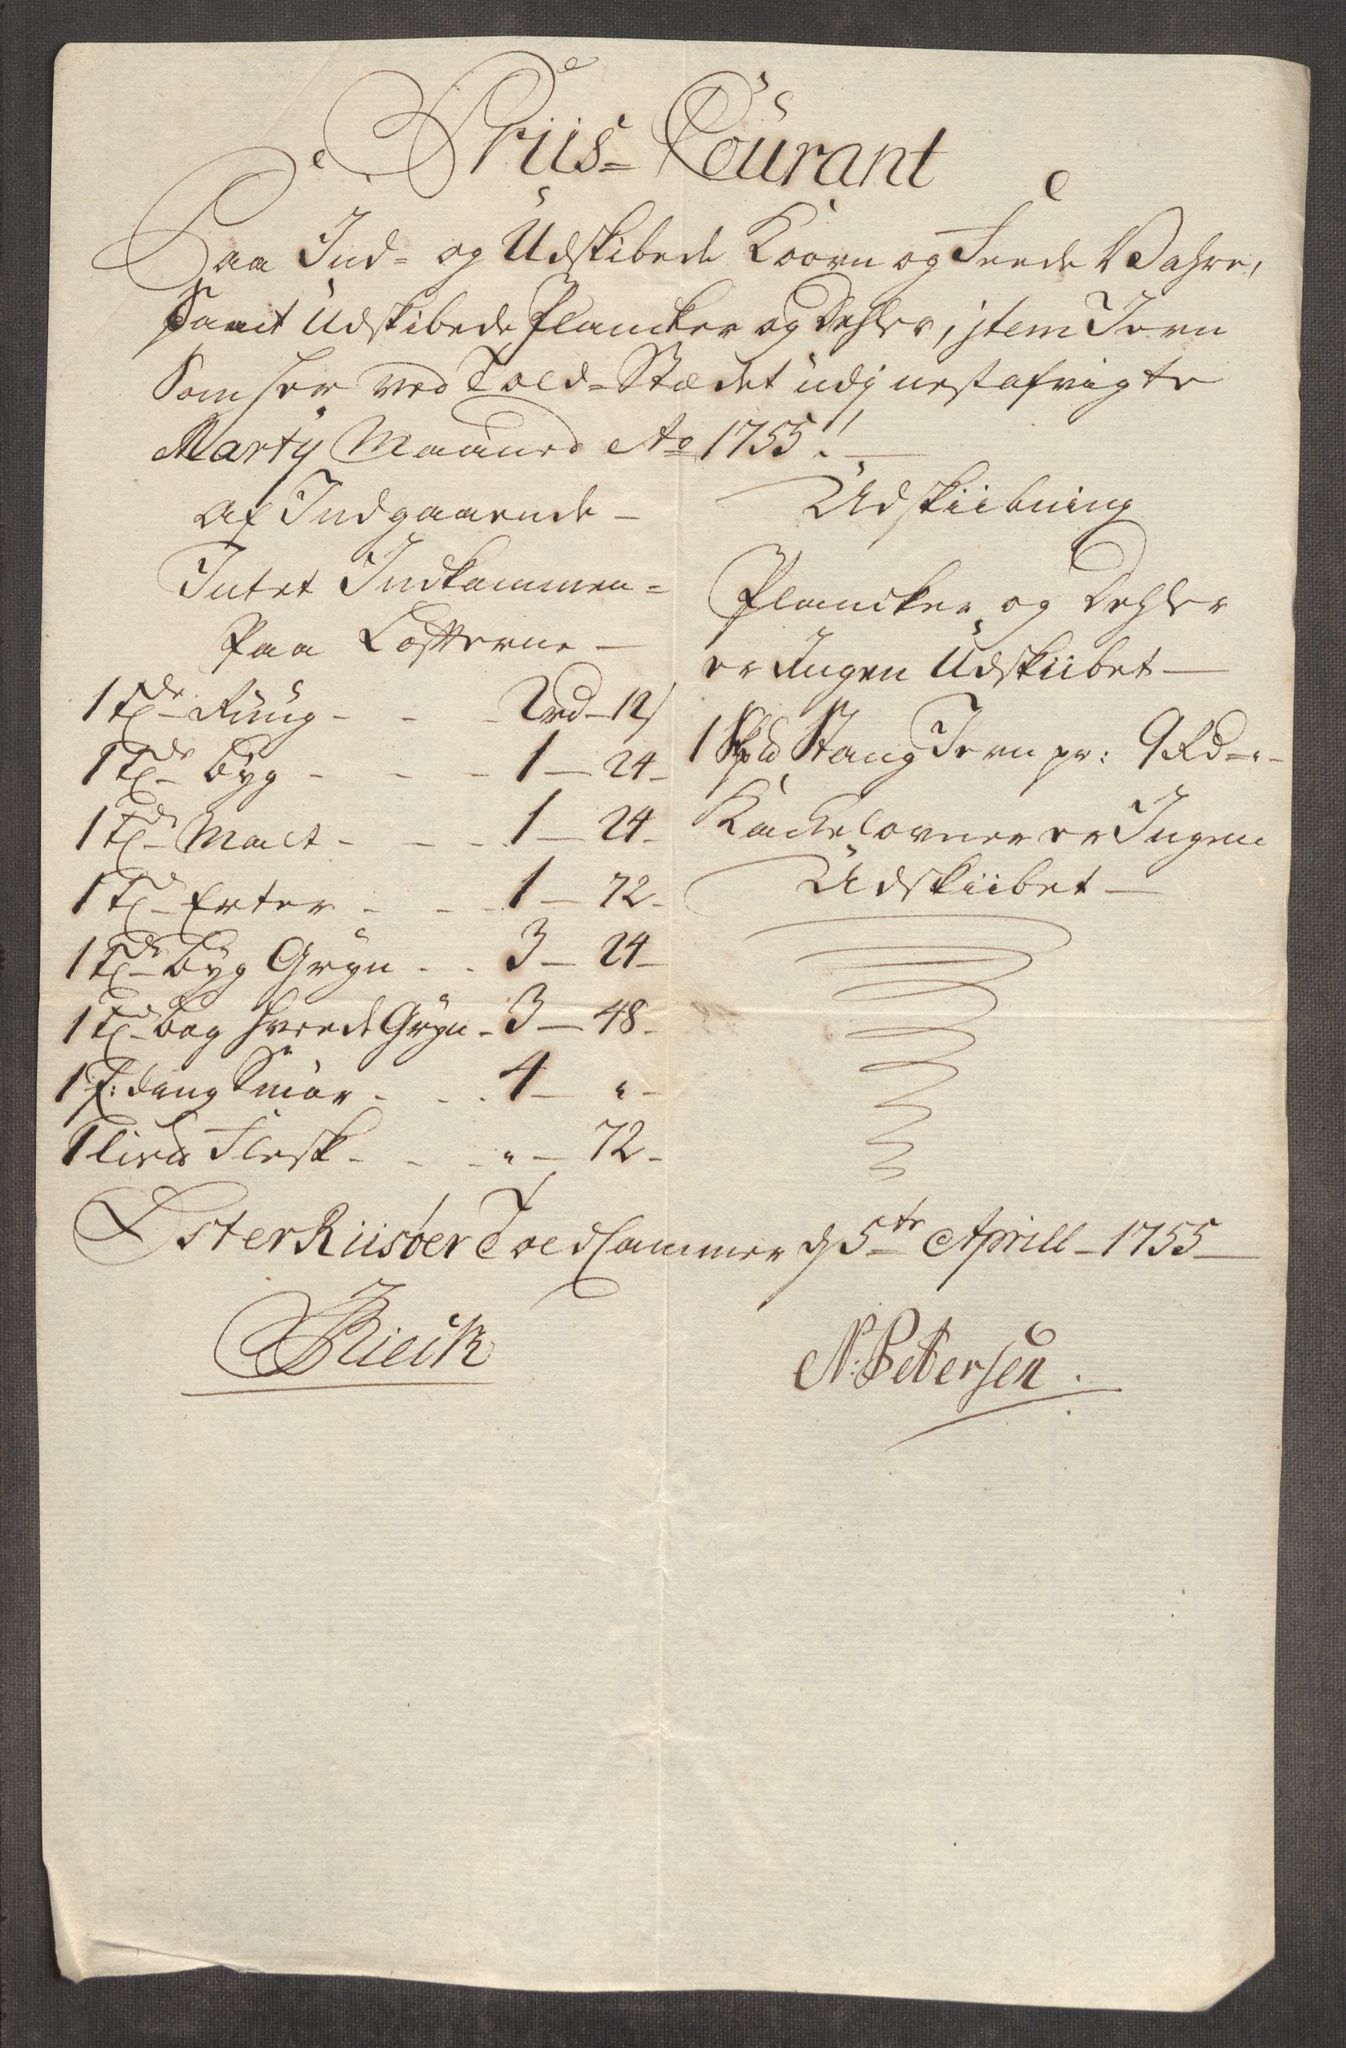 Priis-Courant
Paa Ind- og Udskibede Koorn og Feede Vahre,
Samt Udskibede Plancker og Dehler, jtem Jern
Som her ved Told-Stædet udj nestafvigte
Martij Maaned Ao 1755.
Af Indgaaende
Intet Indkommen
Paa Losterne
1 Tde Ruug - - - 2 rd - 12 s
1 Tde Byg - - - 1 - 24 -
1 Tde Malt - - - 1 - 24 -
1 Td Erter - - - 1 - 72 -
1 Tde Byg Gryn - - 3 - 24 -
1 Td Bog hveede Gryn - 3 - 48 -
1 f: ding Smör - - - 4 - " -
1 Lisd Flesk - - - " - 72 -
Udskiibning
Plancker og Dehler
er Ingen Udskiibet
1 Skpd Stang Jern pr: 9 Rd - " -
Kackelovner er Ingen
Udskiibet
Øster Riisöer Told Cammer d 5te Aprill - 1755
N: Petersen.